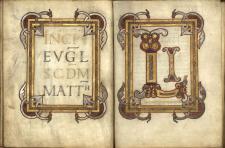 INCP
EVGL
SCDM
MATTH
LI